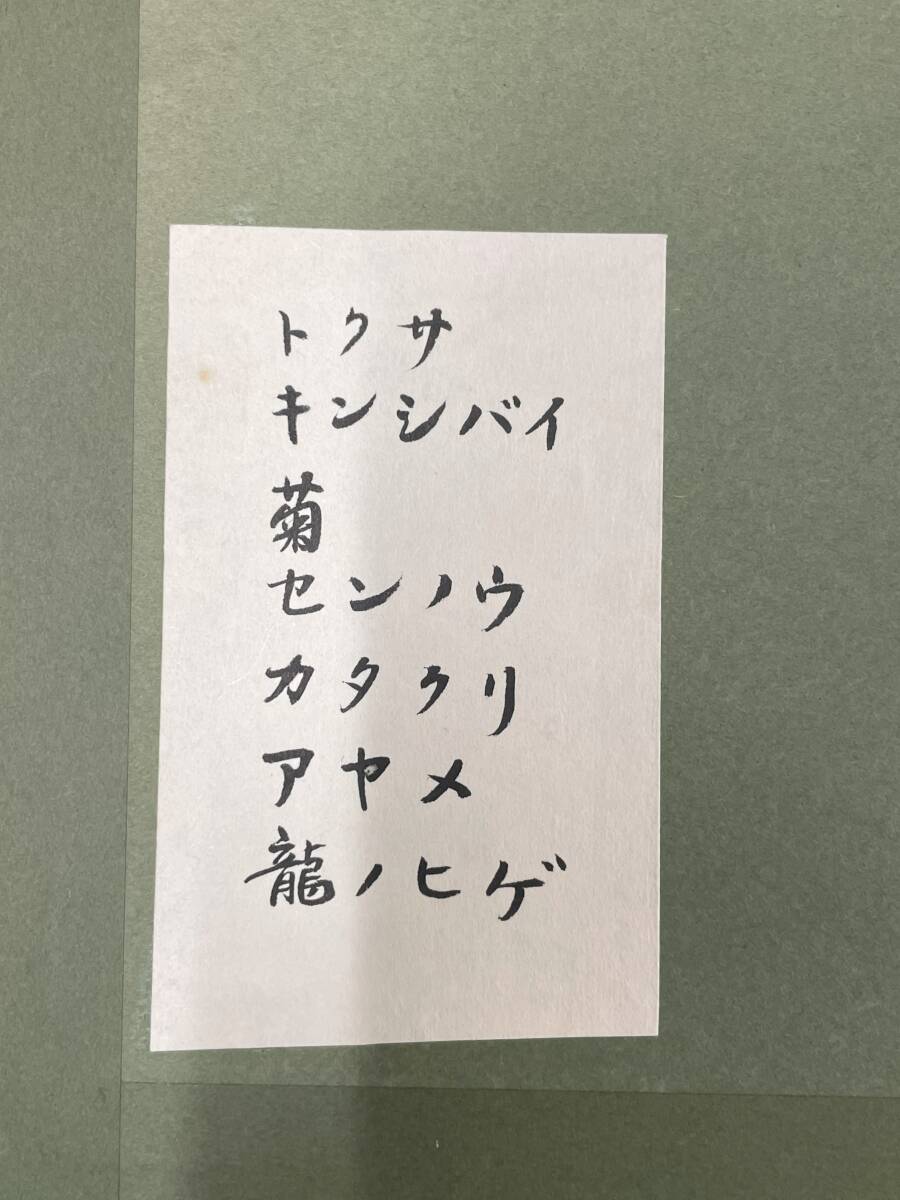 トクサ
キンシバイ
菊
センノウ
カタクリ
アヤメ
龍ノヒゲ